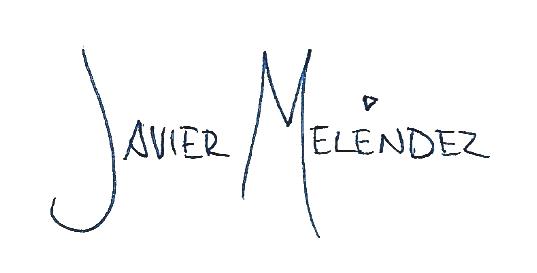 JAVIER MELÉNDEZ